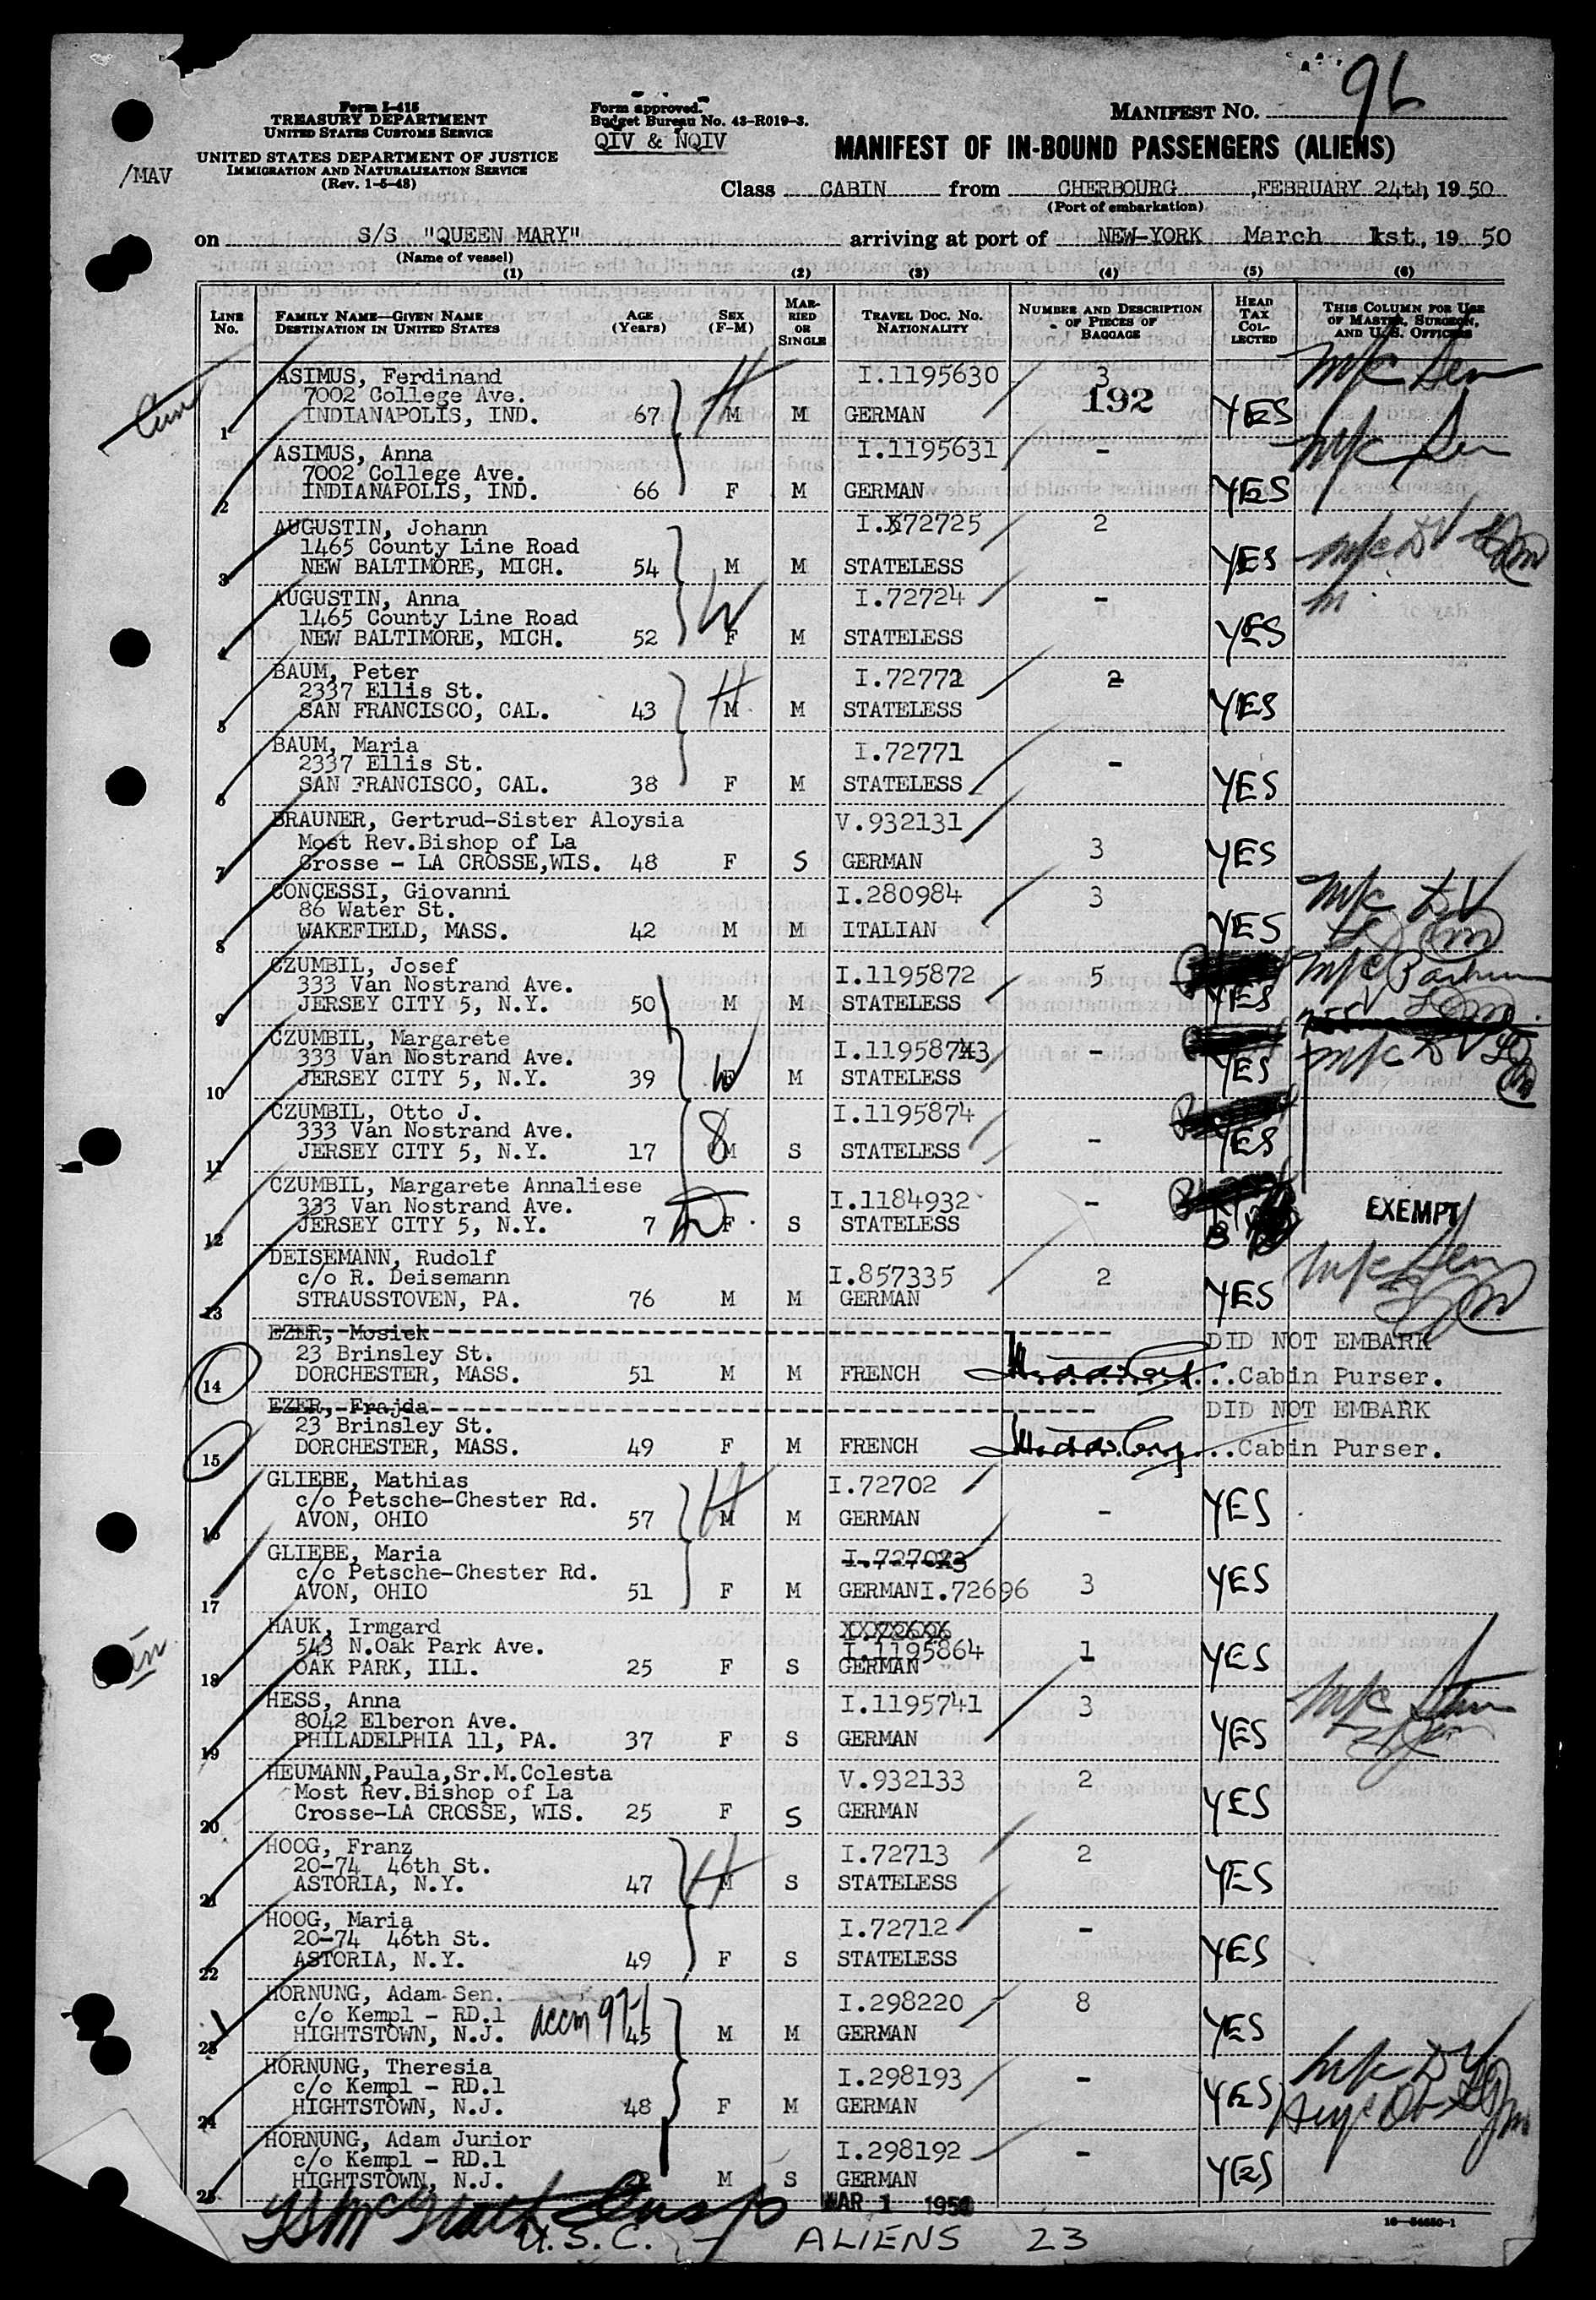 96
Form I-415
TREASURY DEPARTMENT
UNITED STATES CUSTOMS SERVICE
Form approved.
Budget Bureau No. 43-R019-3.
QIV & NQIV
MANIFEST No.
UNITED STATES DEPARTMENT OF JUSTICE
IMMIGRATION AND NATURALIZATION SERVICE
(Rev. 1-5-48)
/MAV
MANIFEST OF IN-BOUND PASSENGERS (ALIENS)
Class CABIN from CHERBOURG , FEBRUARY 24th, 19 50
(Port of embarkation)
on S/S "QUEEN MARY" arriving at port of NEW-YORK March 1st., 19 50
(Name of vessel)
(1) (2) (3) (4) (5) (6)
LINE No. FAMILY NAME—GIVEN NAME DESTINATION IN UNITED STATES AGE (Years) SEX (F-M) MARRIED OR SINGLE TRAVEL DOC. No. NATIONALITY NUMBER AND DESCRIPTION OF PIECES OF BAGGAGE HEAD TAX COLLECTED THIS COLUMN FOR USE OF MASTER, SURGEON, AND U. S. OFFICERS
ASIMUS, Ferdinand I.1195630 3
7002 College Ave. 192
1 INDIANAPOLIS, IND. 67 M M GERMAN YES
ASIMUS, Anna I.1195631 -
7002 College Ave.
2 INDIANAPOLIS, IND. 66 F M GERMAN YES
AUGUSTIN, Johann I.72725 2
1465 County Line Road
3 NEW BALTIMORE, MICH. 54 M M STATELESS YES
AUGUSTIN, Anna I.72724 -
1465 County Line Road
4 NEW BALTIMORE, MICH. 52 F M STATELESS YES
BAUM, Peter 2
2337 Ellis St.
5 SAN FRANCISCO, CAL. 43 M M STATELESS YES
BAUM, Maria I.72771 -
2337 Ellis St.
6 SAN FRANCISCO, CAL. 38 F M STATELESS YES
BRAUNER, Gertrud-Sister Aloysia V.932131
Most Rev.Bishop of La 3
7 Crosse - LA CROSSE,WIS. 48 F S GERMAN YES
CONCESSI, Giovanni I.280984 3
86 Water St.
8 WAKEFIELD, MASS. 42 M M ITALIAN YES
CZUMBIL, Josef I.1195872 5
333 Van Nostrand Ave.
9 JERSEY CITY 5, N.Y. 50 M M STATELESS YES
CZUMBIL, Margarete I.1195873 -
333 Van Nostrand Ave.
10 JERSEY CITY 5, N.Y. 39 F M STATELESS YES
CZUMBIL, Otto J. I.1195874
333 Van Nostrand Ave. -
11 JERSEY CITY 5, N.Y. 17 M S STATELESS YES
CZUMBIL, Margarete Annaliese I.1184932 -
333 Van Nostrand Ave. EXEMPT
12 JERSEY CITY 5, N.Y. 7 F S STATELESS
DEISEMANN, Rudolf I.857335 2
c/o R. Deisemann
13 STRAUSSTOVEN, PA. 76 M M GERMAN YES
EZER, Mosiek DID NOT EMBARK
23 Brinsley St.
14 DORCHESTER, MASS. 51 M M FRENCH Cabin Purser.
EZER, Frajda DID NOT EMBARK
23 Brinsley St.
15 DORCHESTER, MASS. 49 F M FRENCH Cabin Purser.
GLIEBE, Mathias I.72702
c/o Petsche-Chester Rd. -
16 AVON, OHIO 57 M M GERMAN YES
GLIEBE, Maria
c/o Petsche-Chester Rd.
17 AVON, OHIO 51 F M GERMAN I.72696 3 YES
HAUK, Irmgard
543 N.Oak Park Ave. I.1195864 1
18 OAK PARK, ILL. 25 F S GERMAN YES
HESS, Anna I.1195741 3
8042 Elberon Ave.
19 PHILADELPHIA 11, PA. 37 F S GERMAN YES
HEUMANN,Paula,Sr.M.Colesta V.932133 2
Most Rev.Bishop of La
20 Crosse-LA CROSSE, WIS. 25 F S GERMAN YES
HOOG, Franz I.72713 2
20-74 46th St.
21 ASTORIA, N.Y. 47 M S STATELESS YES
HOOG, Maria I.72712 -
20-74 46th St.
22 ASTORIA, N.Y. 49 F S STATELESS YES
HORNUNG, Adam Sen. I.298220 8
c/o Kempl - RD.1
23 HIGHTSTOWN, N.J. 45 M M GERMAN YES
HORNUNG, Theresia I.298193 -
c/o Kempl - RD.1
24 HIGHTSTOWN, N.J. 48 F M GERMAN YES
HORNUNG, Adam Junior I.298192 -
c/o Kempl - RD.1
25 HIGHTSTOWN, N.J. M S GERMAN YES
MAR 1 1950
U.S.C. - ALIENS 23